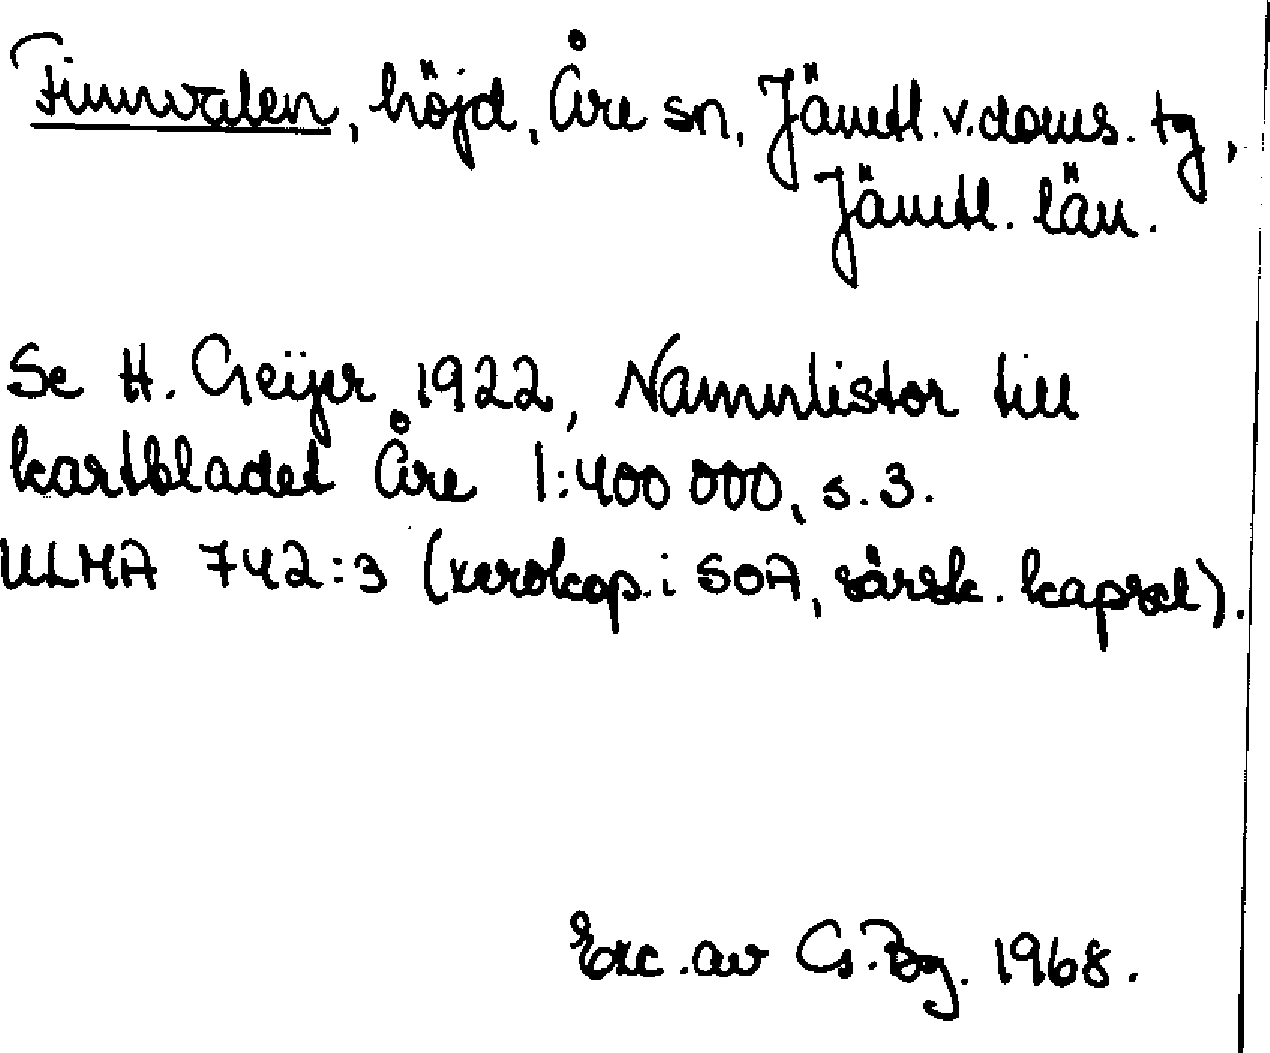 Finnvalen, höjd, Åre sn, Jämtl. v. doms. tg,
Jämtl. län.
Se H. Geijer 1922, Namnlistor till
kartbladet Åre 1:400 000, s. 3.
ULMA 742:3 (xerokop. i SOA, särsk. kapsel).
Exc. av G. Bg. 1968.